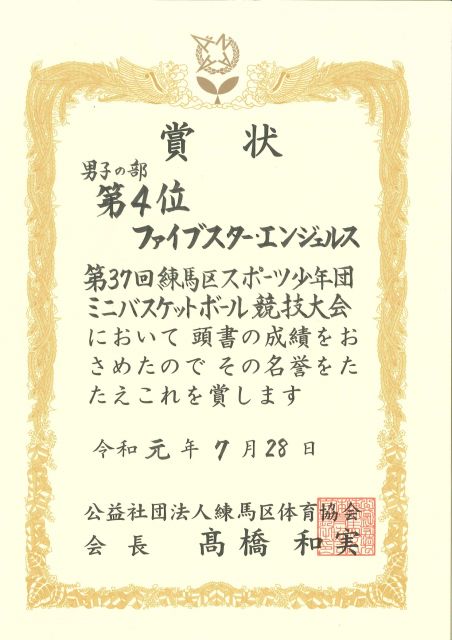 賞状
男子の部
第4位
ファイブスターエンジェルス
第37回練馬区スポーツ少年団
ミニバスケットボール競技大会
において 頭書の成績をお
さめたので その名誉をた
たえこれを賞します
令和元年7月28日
公益社団法人練馬区体育協会
会長 髙橋和実